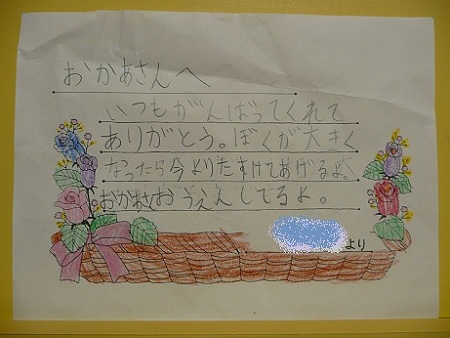 おかあさんへ
いつもがんばってくれて
ありがとう。ぼくが大きく
なったら今よりたすけてあげるよ。
おかあさんおうえんしてるよ。
より